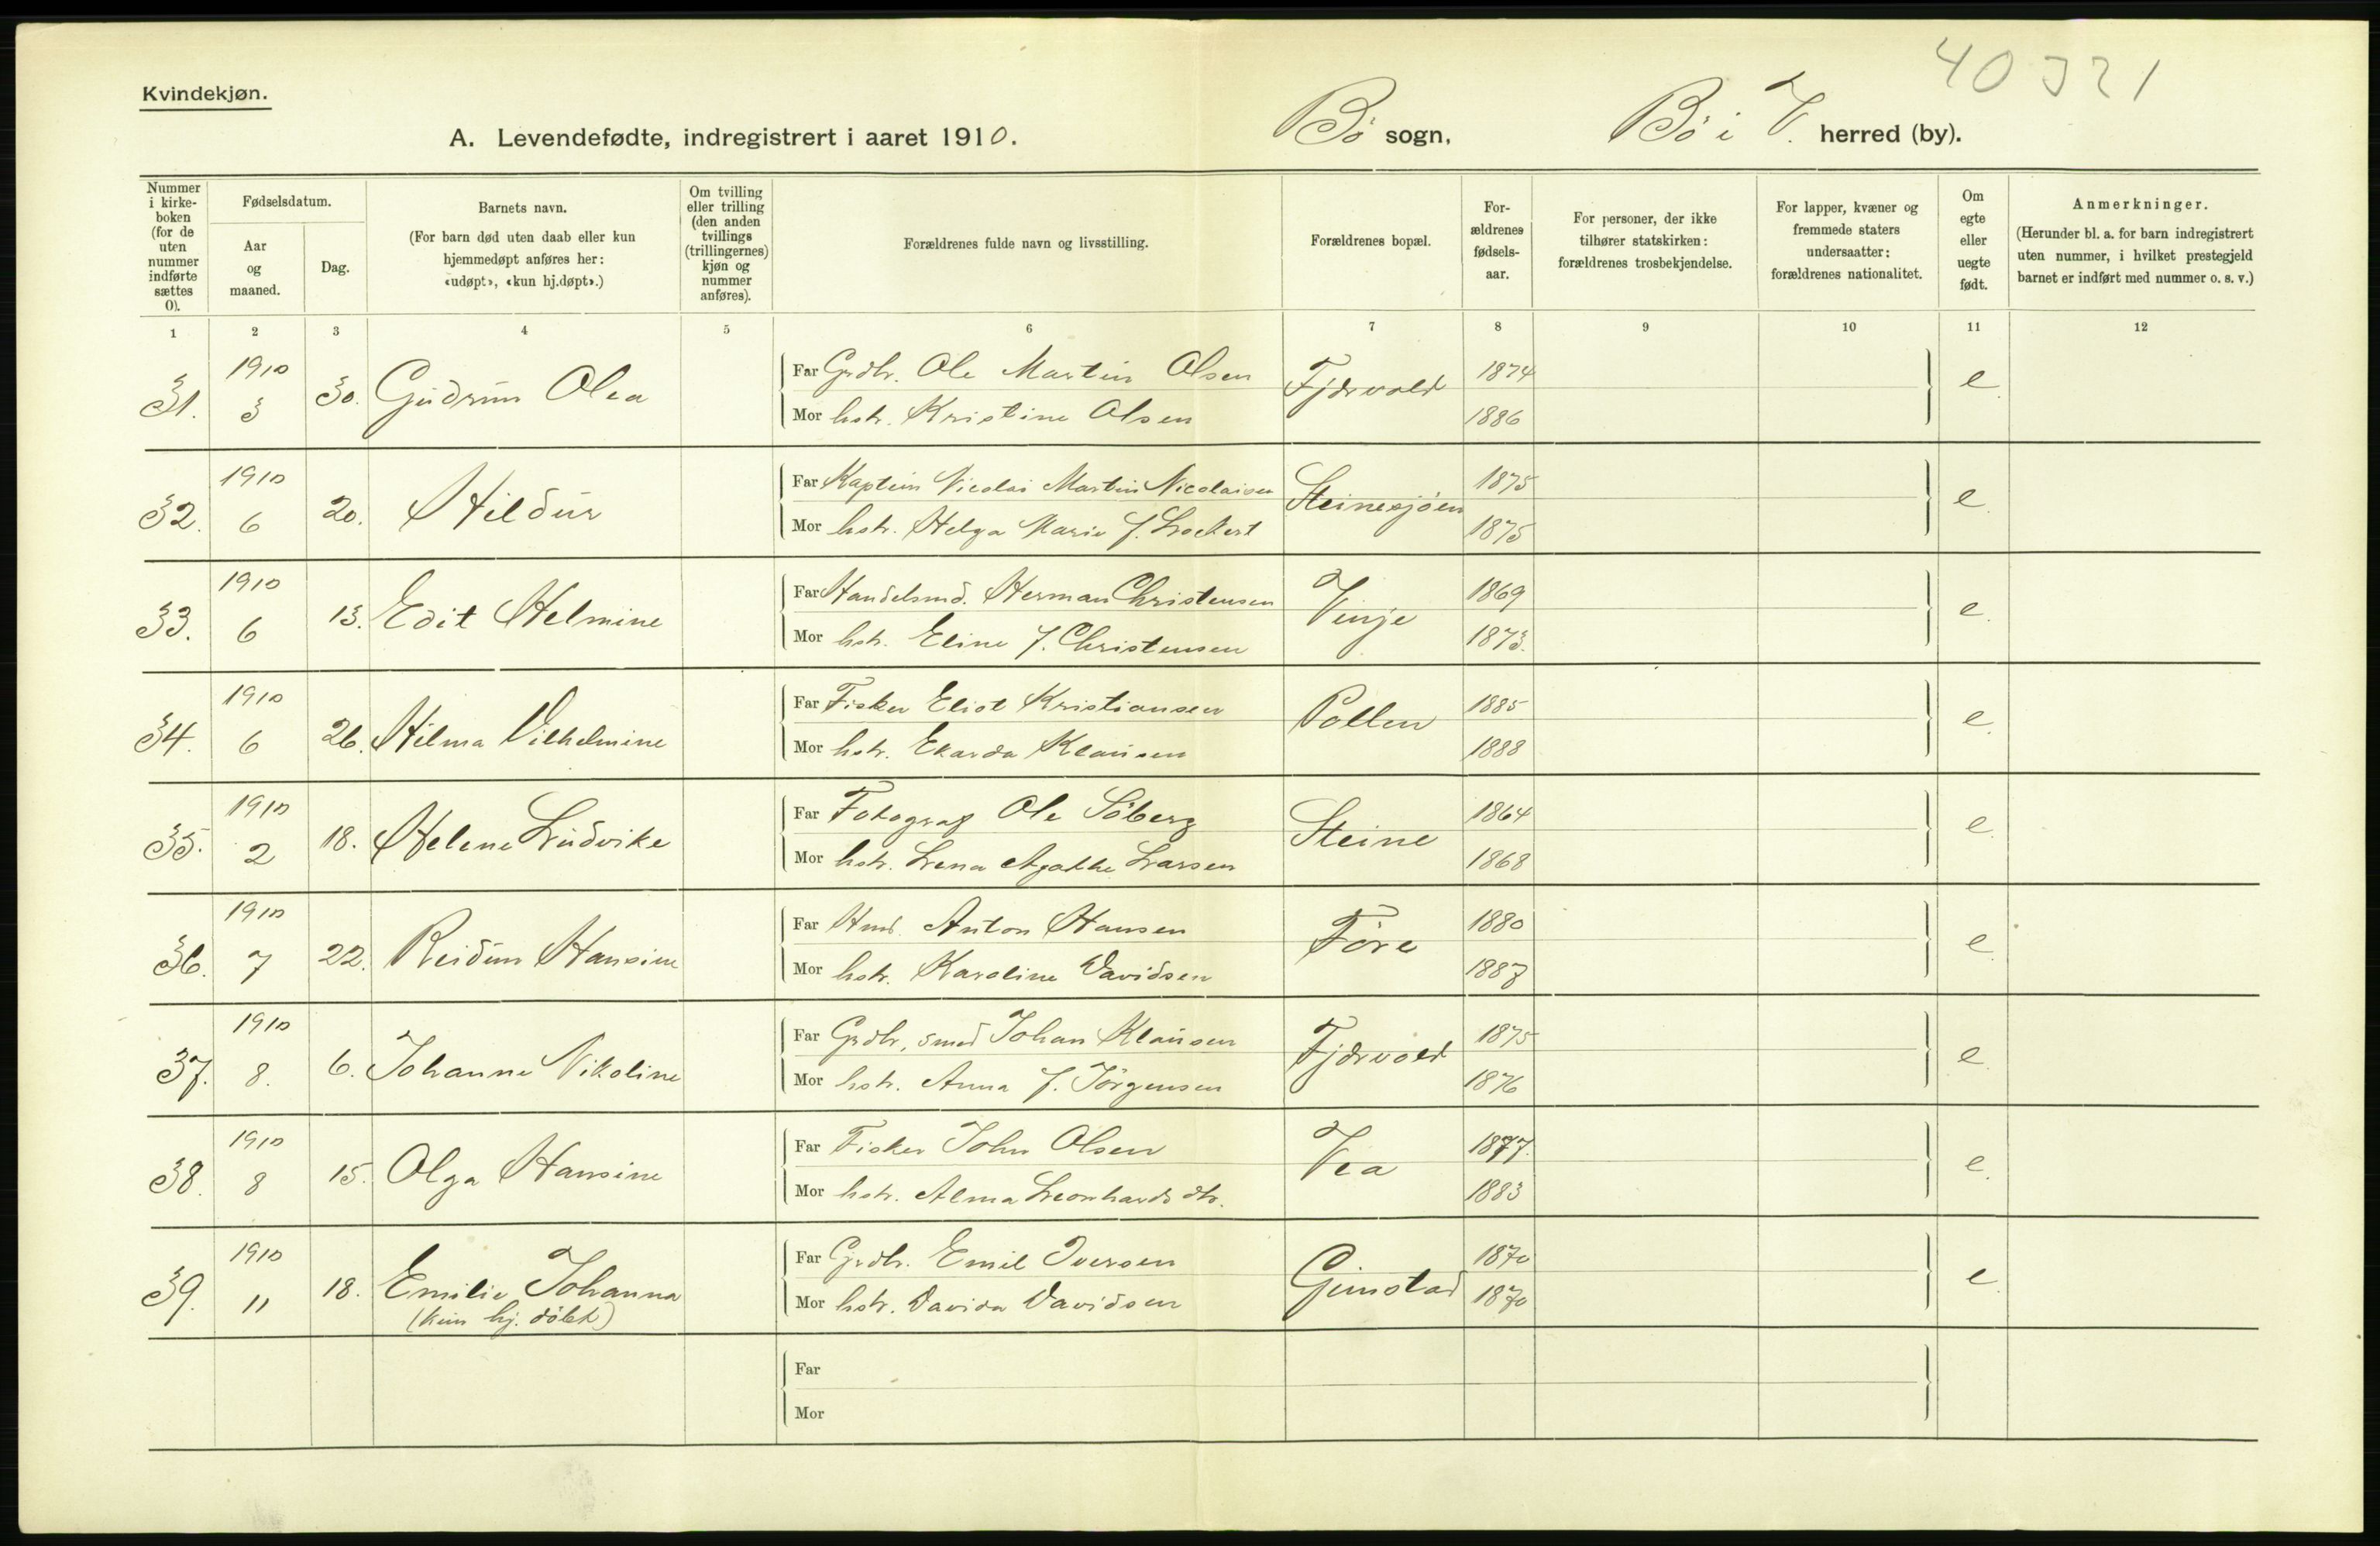 40321
Kvindekjøn.
A. Levendefødte, indregistrert i aaret 1910. Bö sogn, Bö i V. herred (by).
Nummer i kirkeboken (for de uten nummer indførte sættes 0).
Fødselsdatum.
Aar og maaned.
Dag.
Barnets navn.
(For barn død uten daab eller kun hjemmedøpt anføres her: «udøpt», «kun hj.døpt».)
Om tvilling eller trilling (den anden tvillings (trillingernes) kjøn og nummer anføres).
Forældrenes fulde navn og livsstilling.
Forældrenes bopæl.
Forældrenes fødselsaar.
For personer, der ikke tilhører statskirken: forældrenes trosbekjendelse.
For lapper, kvæner og fremmede staters undersaatter: forældrenes nationalitet.
Om egte eller uegte født.
Anmerkninger.
(Herunder bl. a. for barn indregistrert uten nummer, i hvilket prestegjeld barnet er indført med nummer o. s. v.)
1 2 3 4 5 6 7 8 9 10 11 12
31. 1910 3 30. Gudrun Olea Far Grdbr. Ole Martin Olsen Fjærvold 1874 e.
Mor hstr. Kristine Olsen 1886
32. 1910 6 20. Hildur Far Kaptein Nicolai Martin Nicolaisen Steinesjöen 1875 e.
Mor hstr. Helga Marie f. Lockert 1875
33. 1910 6 13. Edit Helmine Far Handelsmd. Herman Christensen Vinje 1869 e.
Mor hstr. Eline f. Christensen 1873.
34. 1910 6 26. Hilma Vilhelmine Far Fisker Eliot Kristiansen Pollen 1885 e.
Mor hstr. Ekarda Klausen 1888
35. 1910 2 18. Helene Ludvike Far Fotograf Ole Söberg Steine 1864 e.
Mor hstr. Lena Agathe Larsen 1868
36. 1910 7 22. Reidun Hansine Far Hmd. Anton Hansen Före 1880 e.
Mor hstr. Karoline Davidsen
37. 1910 8. 6. Johanne Nikoline Far Grdbr, smed Johan Klausen Fjærvold 1875 e.
Mor hstr. Anna f. Jörgensen 1876
38. 1910 8 15. Olga Hansine Far Fisker John Olsen Vea 1877. e.
Mor hstr. Alma Leonhardsdtr. 1883
39. 1910 11 18. Emilie Johanna Far Grdbr. Emil Iversen Gimstad 1870 e.
(kun hj. döbt) Mor hstr. Davida Davidsen 1870
Far
Mor